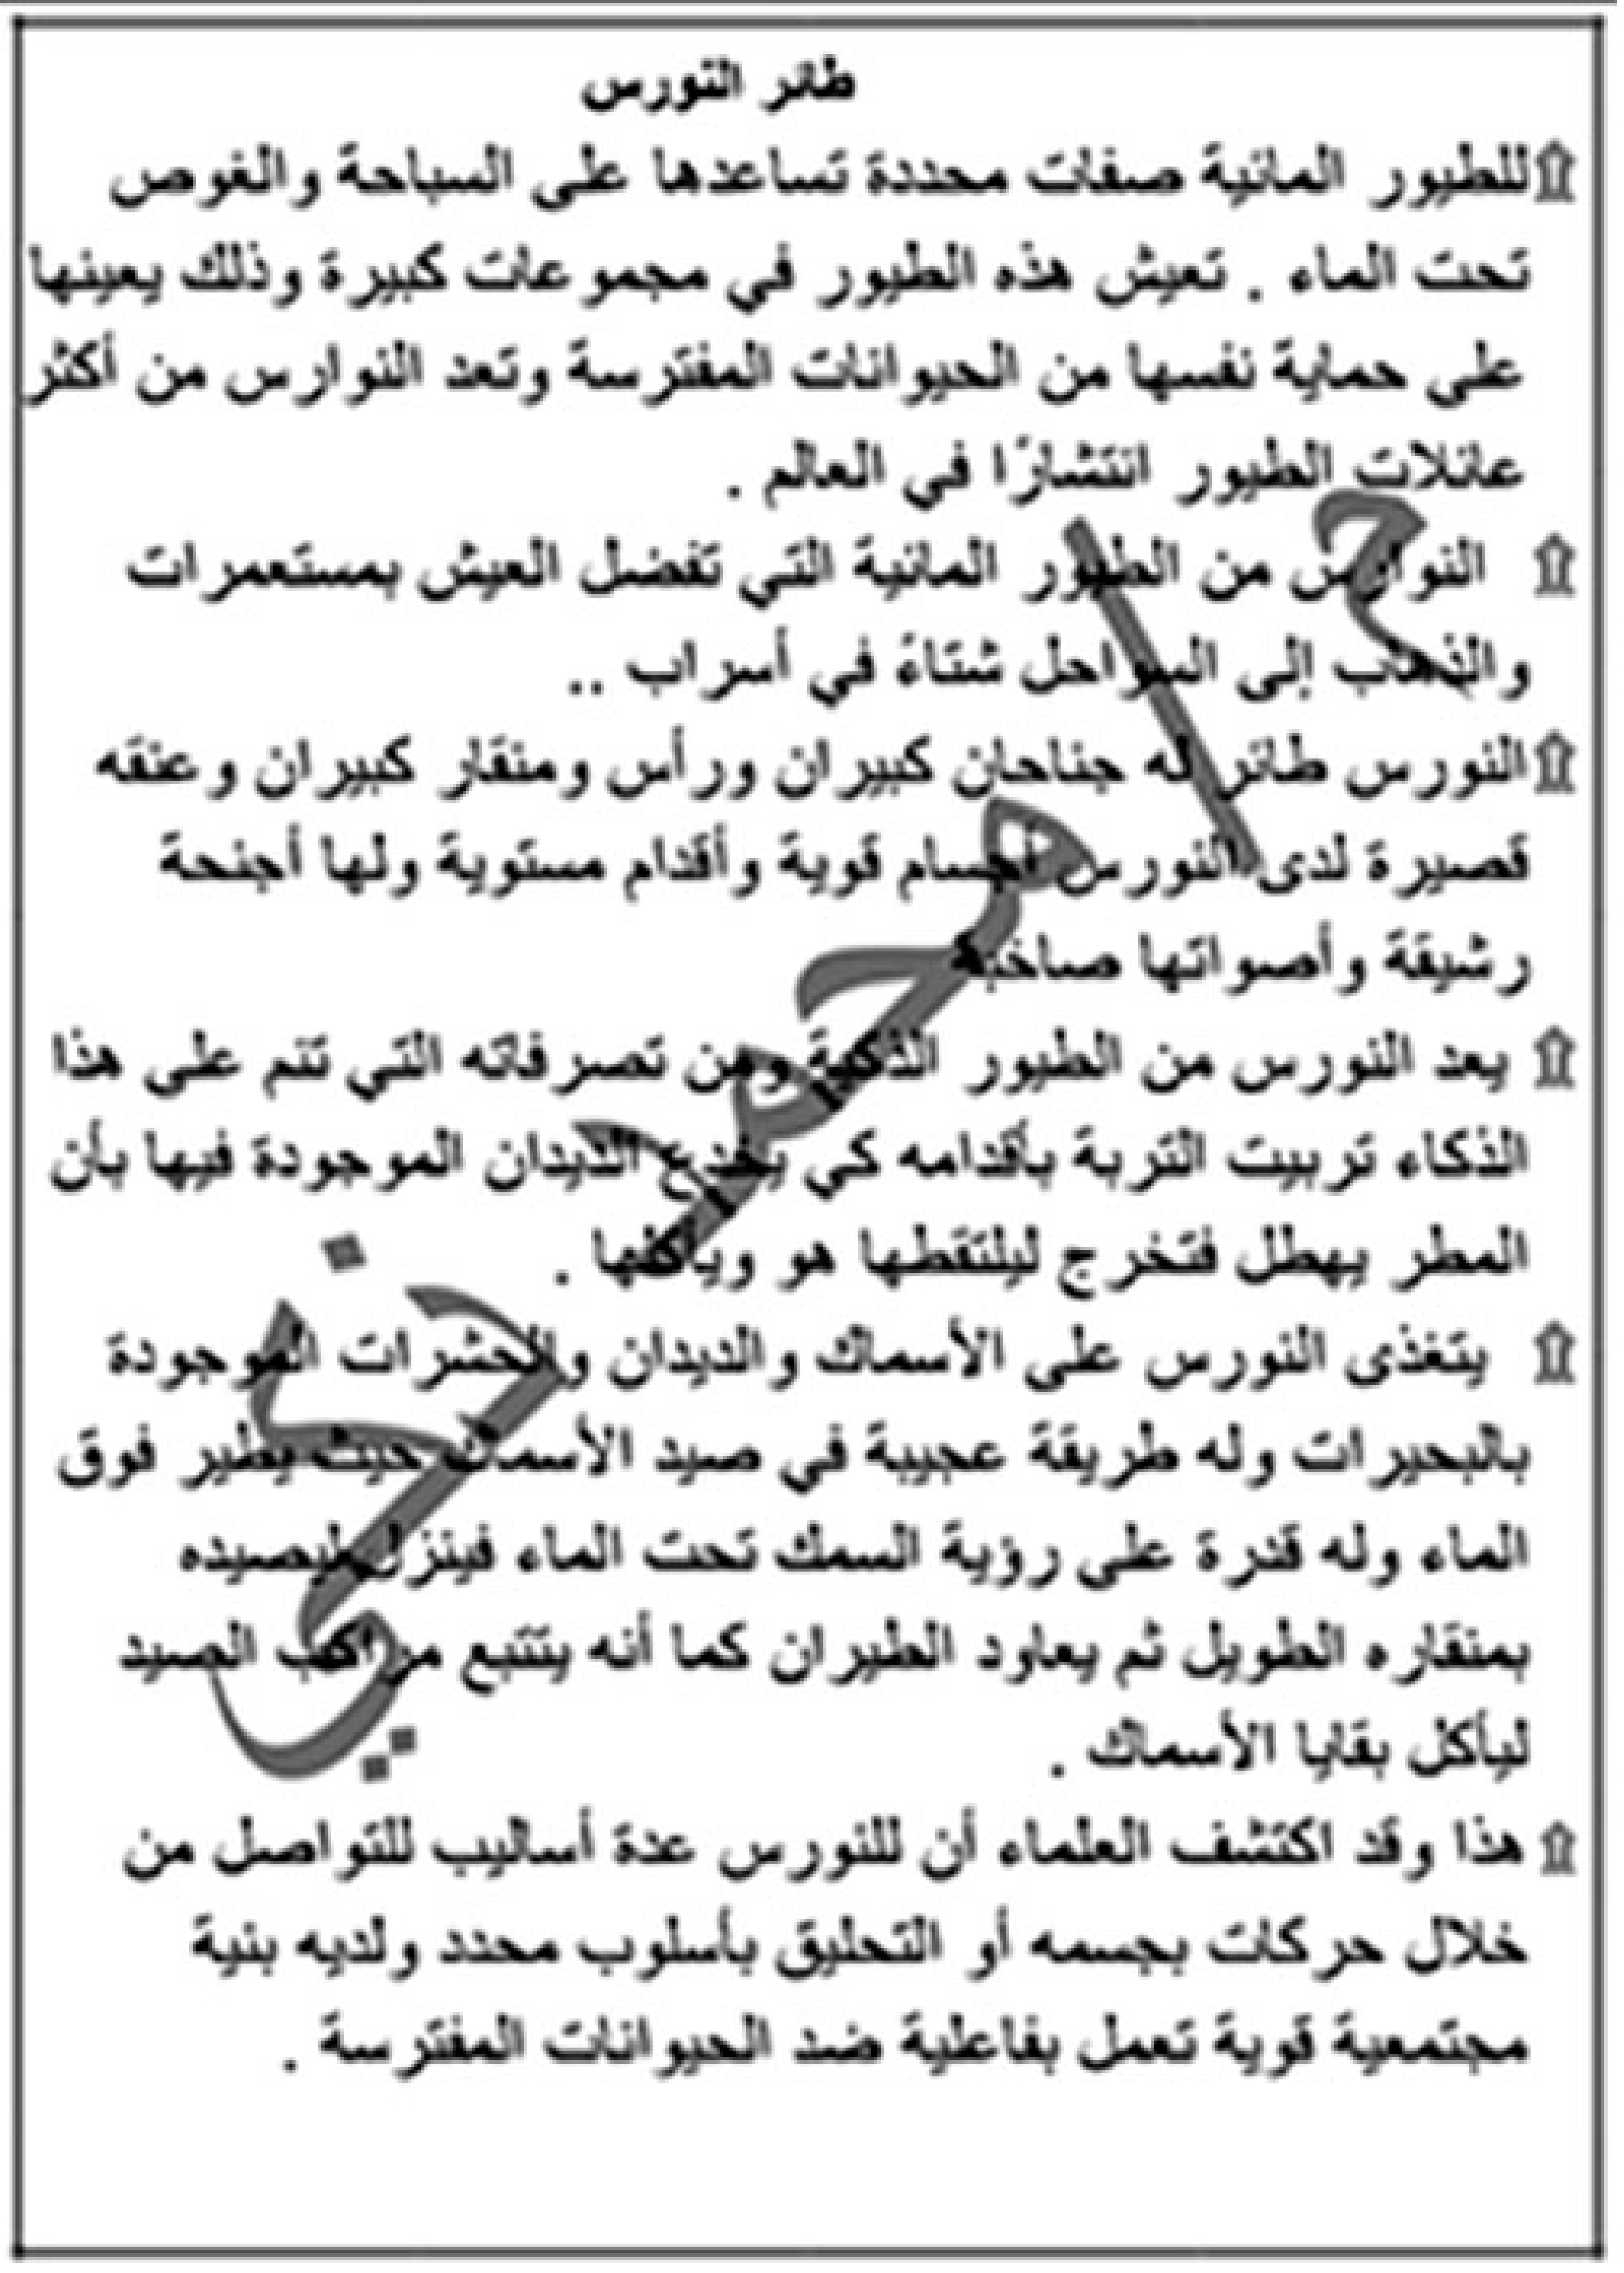 طائر النورس
۩للطيور المائية صفات محددة تساعدها على السباحة والغوص
تحت الماء . تعيش هذه الطيور في مجموعات كبيرة وذلك يعينها
على حماية نفسها من الحيوانات المفترسة وتعد النوارس من أكثر
عائلات الطيور انتشارًا في العالم .
۩ النوارس من الطيور المائية التي تفضل العيش بمستعمرات
والذهاب إلى السواحل شتاءً في أسراب ..
۩النورس طائر له جناحان كبيران ورأس ومنقار كبيران وعنقه
قصيرة لدى النورس أجسام قوية وأقدام مستوية ولها أجنحة
رشيقة وأصواتها صاخبة
۩ يعد النورس من الطيور الذكية ومن تصرفاته التي تنم على هذا
الذكاء تربيت التربة بأقدامه كي يخدع الديدان الموجودة فيها بأن
المطر يهطل فتخرج ليلتقطها هو ويأكلها .
۩ يتغذى النورس على الأسماك والديدان والحشرات الموجودة
بالبحيرات وله طريقة عجيبة في صيد الأسماك حيث يطير فوق
الماء وله قدرة على رؤية السمك تحت الماء فينزل ليصيده
بمنقاره الطويل ثم يعاود الطيران كما أنه يتتبع مراكب الصيد
ليأكل بقايا الأسماك .
۩ هذا وقد اكتشف العلماء أن للنورس عدة أساليب للتواصل من
خلال حركات بجسمه أو التحليق بأسلوب محدد ولديه بنية
مجتمعية قوية تعمل بفاعلية ضد الحيوانات المفترسة .